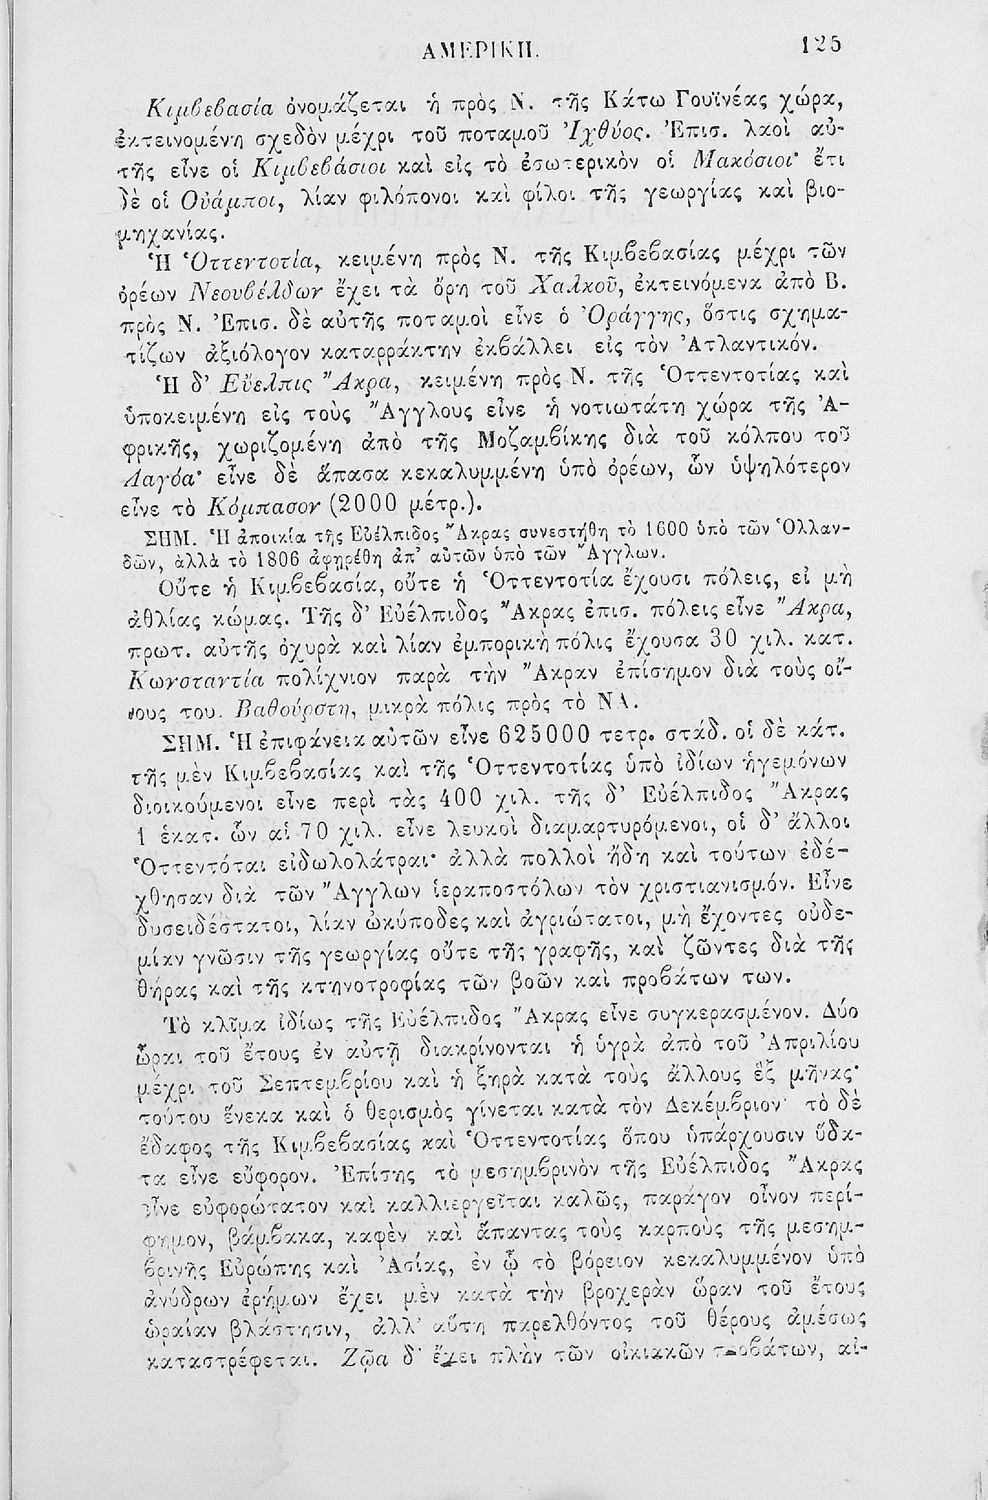 ΑΜΕΡΙΚΗ. 125
Κιμβεβασία ὀνομάζεται ἡ πρὸς Ν. τῆς Κάτω Γουϊνέας χώρα,
ἐκτεινομένη σχεδὸν μέχρι τοῦ ποταμοῦ Ἰχθύος. Ἐπισ. λαοὶ αὐ-
τῆς εἶνε οἱ Κιμβεβάσιοι καὶ εἰς τὸ ἐσωτερικὸν οἱ Μακόσιοι· ἔτι
δὲ οἱ Οὐάμποι, λίαν φιλόπονοι καὶ φίλοι τῆς γεωργίας καὶ βιο-
μηχανίας.
Ἡ Ὀττεντοτία, κειμένη πρὸς Ν. τῆς Κιμβεβασίας μέχρι τῶν
ὀρέων Νεουβέλδων ἔχει τὰ ὄρη τοῦ Χαλκοῦ, ἐκτεινόμενα ἀπὸ Β.
πρὸς Ν. Ἐπισ. δὲ αὐτῆς ποταμοὶ εἶνε ὁ Ὀράγγης, ὅστις σχημα-
τίζων ἀξιόλογον καταρράκτην ἐκβάλλει εἰς τὸν Ἀτλαντικόν.
Ἡ δ’ Εὔελπις Ἄκρα, κειμένη πρὸς Ν. τῆς Ὀττεντοτίας καὶ
ὑποκειμένη εἰς τοὺς Ἄγγλους εἶνε ἡ νοτιωτάτη χώρα τῆς Ἀ-
φρικῆς, χωριζομένη ἀπὸ τῆς Μοζαμβίκης διὰ τοῦ κόλπου τοῦ
Λαγόα· εἶνε δὲ ἅπασα κεκαλυμμένη ὑπὸ ὀρέων, ὧν ὑψηλότερον
εἶνε τὸ Κόμπασον (2000 μέτρ.).
ΣΗΜ. Ἡ ἀποικία τῆς Εὐέλπιδος Ἄκρας συνεστήθη τὸ 1600 ὑπὸ τῶν Ὁλλαν-
δῶν, ἀλλὰ τὸ 1806 ἀφῃρέθη ἀπ’ αὐτῶν ὑπὸ τῶν Ἄγγλων.
Οὔτε ἡ Κιμβεβασία, οὔτε ἡ Ὀττεντοτία ἔχουσι πόλεις, εἰ μὴ
ἀθλίας κώμας. Τῆς δ’ Εὐέλπιδος Ἄκρας ἐπισ. πόλεις εἶνε Ἄκρα,
πρωτ. αὐτῆς ὀχυρὰ καὶ λίαν ἐμπορικὴ πόλις ἔχουσα 30 χιλ. κατ.
Κωνσταντία πολίχνιον παρὰ τὴν Ἄκραν ἐπίσημον διὰ τοὺς οἴ-
νους του. Βαθούρστη, μικρὰ πόλις πρὸς τὸ ΝΑ.
ΣΗΜ. Ἡ ἐπιφάνεια αὐτῶν εἶνε 625000 τετρ. στάδ. οἱ δὲ κάτ.
τῆς μὲν Κιμβεβασίας καὶ τῆς Ὀττεντοτίας ὑπὸ ἰδίων ἡγεμόνων
διοικούμενοι εἶνε περὶ τὰς 400 χιλ. τῆς δ’ Εὐέλπιδος Ἄκρας
1 ἑκατ. ὧν αἱ 70 χιλ. εἶνε λευκοὶ διαμαρτυρόμενοι, οἱ δ’ ἄλλοι
Ὀττεντόται εἰδωλολάτραι· ἀλλὰ πολλοὶ ἤδη καὶ τούτων ἐδέ-
χθησαν διὰ τῶν Ἄγγλων ἱεραποστόλων τὸν χριστιανισμόν. Εἶνε
δυσειδέστατοι, λίαν ὠκύποδες καὶ ἀγριώτατοι, μὴ ἔχοντες οὐδε-
μίαν γνῶσιν τῆς γεωργίας οὔτε τῆς γραφῆς, καὶ ζῶντες διὰ τῆς
θήρας καὶ τῆς κτηνοτροφίας τῶν βοῶν καὶ προβάτων των.
Τὸ κλῖμα ἰδίως τῆς Εὐέλπιδος Ἄκρας εἶνε συγκερασμένον. Δύο
ὧραι τοῦ ἔτους ἐν αὐτῇ διακρίνονται ἡ ὑγρὰ ἀπὸ τοῦ Ἀπριλίου
μέχρι τοῦ Σεπτεμβρίου καὶ ἡ ξηρὰ κατὰ τοὺς ἄλλους ἓξ μῆνας·
τούτου ἕνεκα καὶ ὁ θερισμὸς γίνεται κατὰ τὸν Δεκέμβριον· τὸ δὲ
ἔδαφος τῆς Κιμβεβασίας καὶ Ὀττεντοτίας ὅπου ὑπάρχουσιν ὕδα-
τα εἶνε εὔφορον. Ἐπίσης τὸ μεσημβρινὸν τῆς Εὐέλπιδος Ἄκρας
εἶνε εὐφορώτατον καὶ καλλιεργεῖται καλῶς, παράγον οἶνον περί-
φημον, βάμβακα, καφὲν καὶ ἅπαντας τοὺς καρποὺς τῆς μεσημ-
βρινῆς Εὐρώπης καὶ Ἀσίας, ἐν ᾧ τὸ βόρειον κεκαλυμμένον ὑπὸ
ἀνύδρων ἐρήμων ἔχει μὲν κατὰ τὴν βροχερὰν ὥραν τοῦ ἔτους
ὡραίαν βλάστησιν, ἀλλ’ αὕτη παρελθόντος τοῦ θέρους ἀμέσως
καταστρέφεται. Ζῷα δ’ ἔχει πλὴν τῶν οἰκιακῶν προβάτων, αἰ-